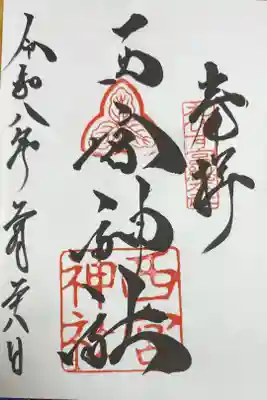 奉拝
西宮神社
西宮
神社
令和八年月廿八日